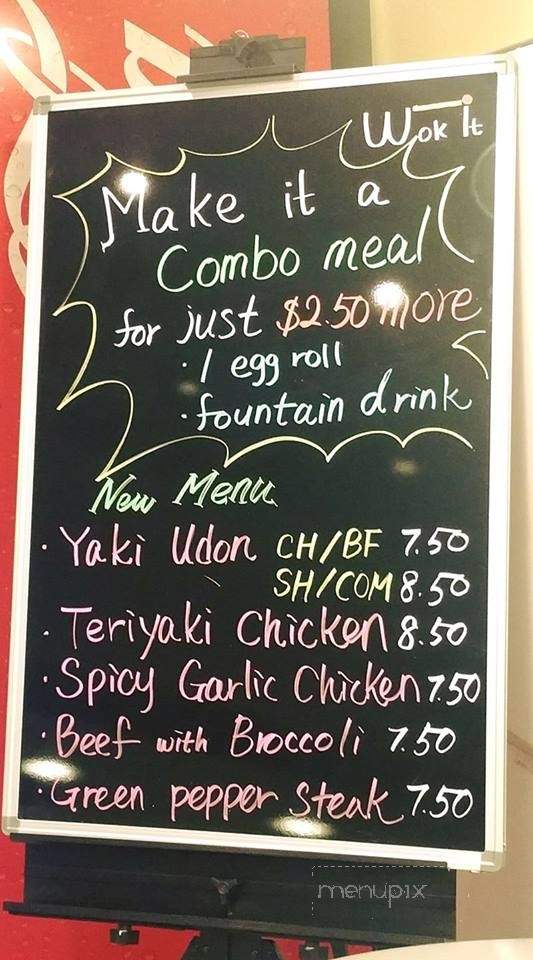 Wok It
Make it a
Combo meal
for just $2.50 more
· 1 egg roll
· fountain drink
New Menu
· Yaki Udon CH/BF 7.50
SH/COM 8.50
· Teriyaki Chicken 8.50
· Spicy Garlic Chicken 7.50
· Beef with Broccoli 7.50
· Green pepper Steak 7.50
menupix